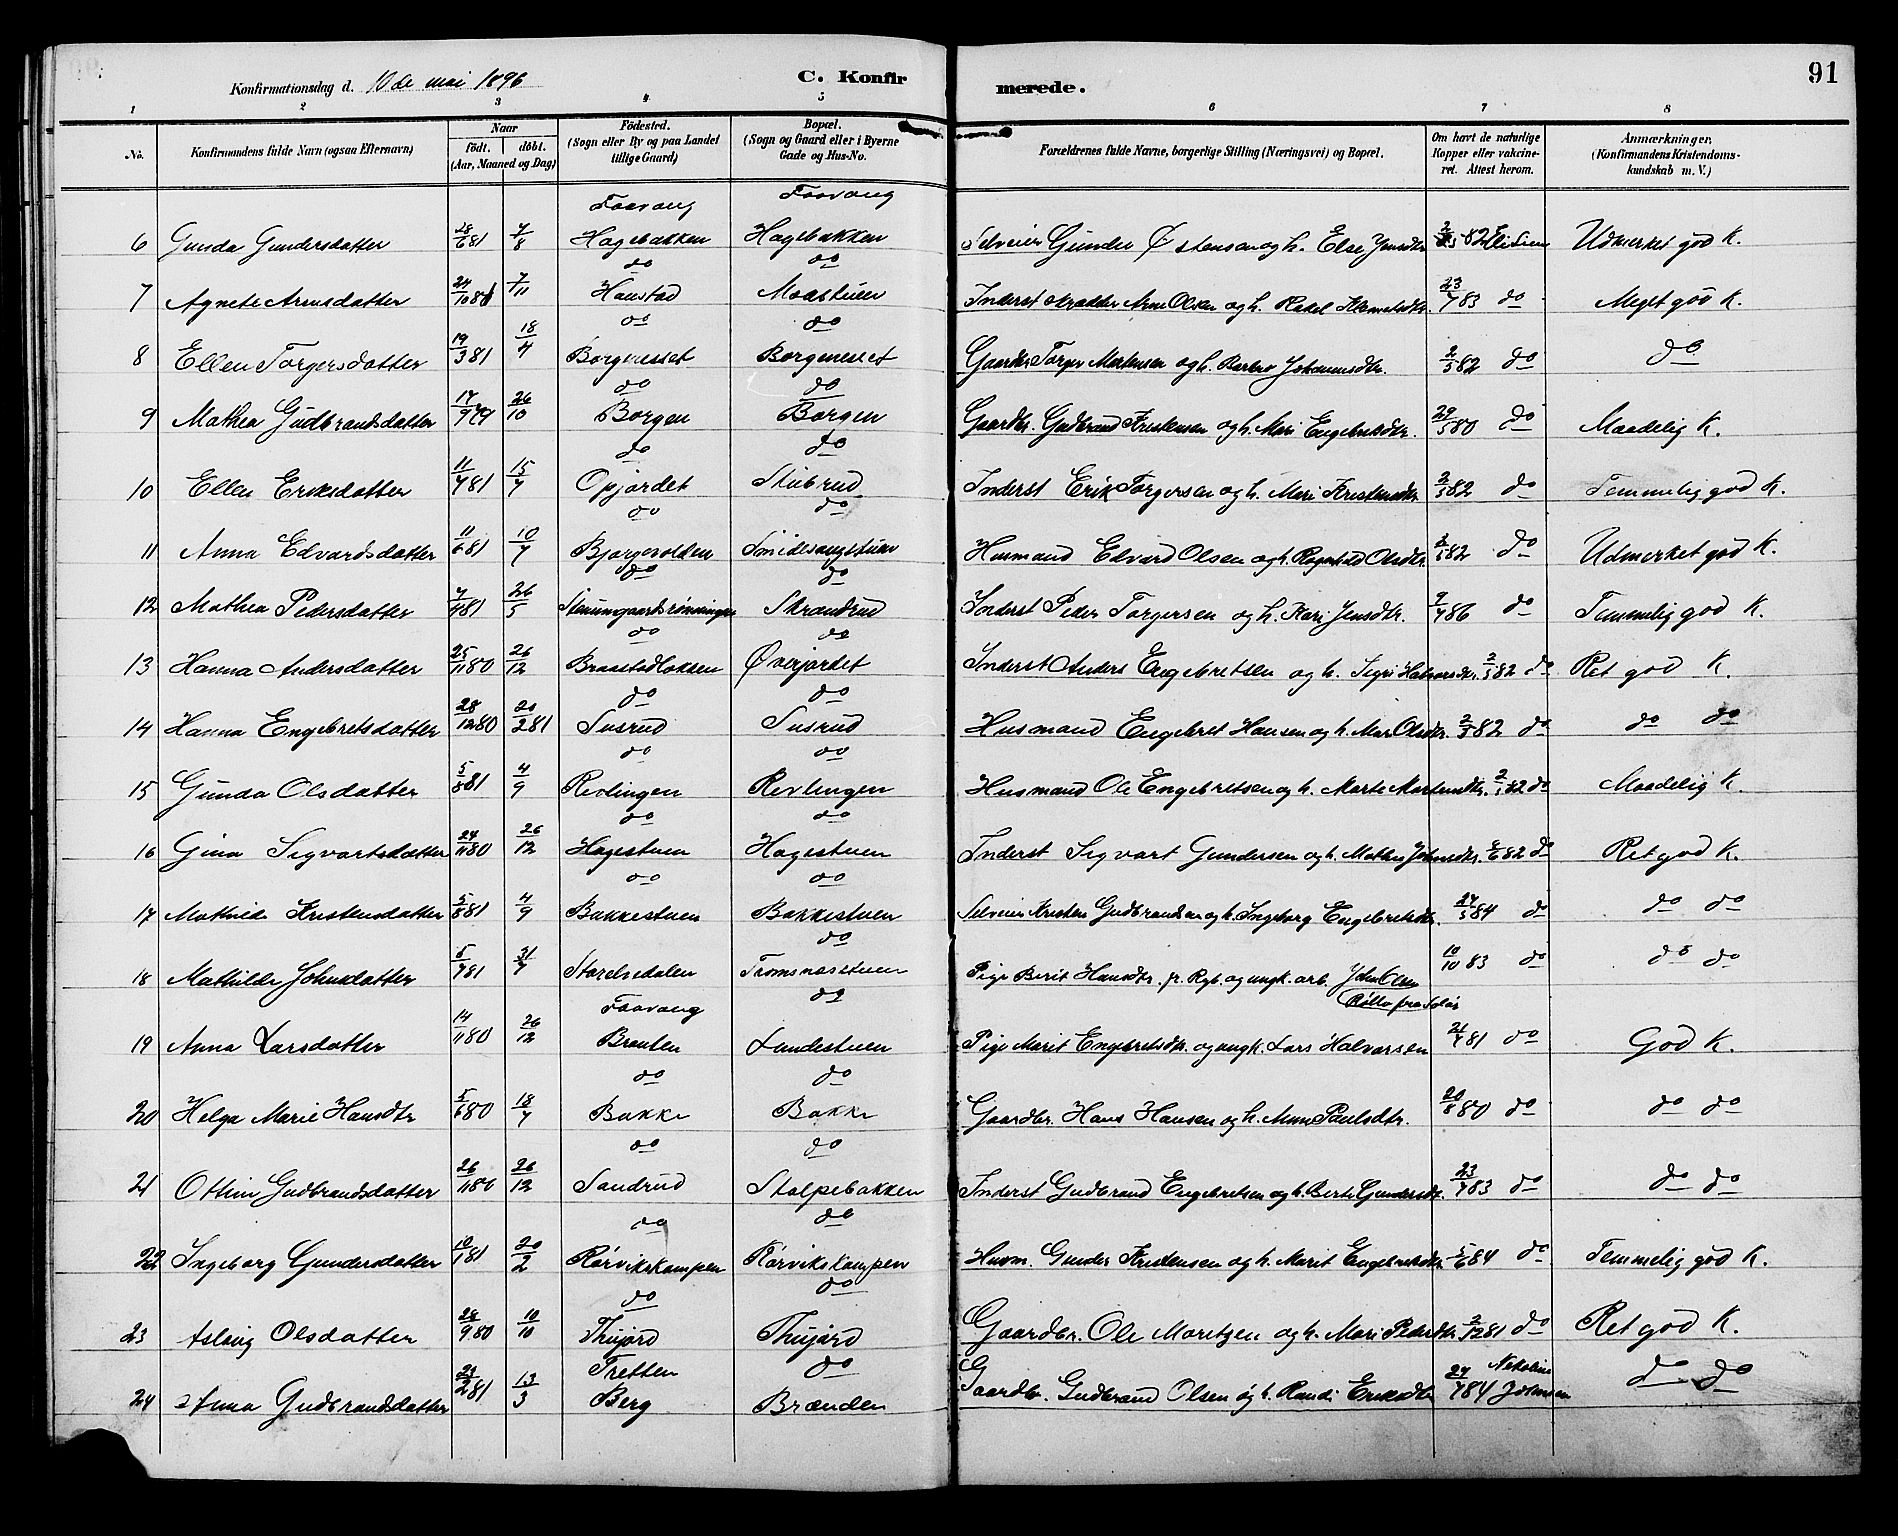 Konfirmationsdag d. 10de mai 1896 C. Konfirmerede. 91
1 2 3 4 5 6 7 8
No. Konfirmandens fulde Navn (ogsaa Efternavn) Naar födt. döbt. (Aar, Maaned og Dag) Födested. (Sogn eller By og paa Landet tillige Gaard) Bopæl. (Sogn og Gaard eller i Byerne Gade og Hus-No. Forældrenes fulde Navne, borgerlige Stilling (Næringsvei) og Bopæl. Om havt de naturlige Kopper eller vakcineret. Attest herom. Anmærkninger. (Konfirmandens Kristendomskundskab m. V.)
Faavang Faavang
6 Gunda Gundersdatter 28/6 81 7/8 Hagebakken Hagebakken Selveier Gunder Østensen og h. Else Jensdtr. 82 Udmerket god K.
do do
7 Agnete Arnesdatter 24/10 80 7/11 Haustad Moastuen Inderst Arne Olsen og h. 23/7 83 do Meget god K.
do do
8 Ellen Torgersdatter 19/3 81 18/4 Borgenesset Borgenesset Gaardbr. Torger Mortensen og h. Barbro Johannesdtr. 2/5 82 do do
do do
9 Mathea Gudbrandsdatter 17/9 79 26/10 Borgen Borgen Gaardbr. Gudbrand Kristensen og h. Mari Engebretsdtr. 29/5 80 do Maadelig K.
do do
10 Ellen Eriksdatter 11/4 81 15/7 Opjordet Stubrud Inderst Erik Torgersen og h. Mari Kristensdtr. 2/5 82 do Temmelig god K.
do do
11 Anna Edvardsdatter 11/6 81 10/7 Bjorgevolden Smidesangstuen Husmand Edvard Olsen og h. Ragnhild Olsdtr. 2/5 82 do Udmerket god K.
do do
12 Mathea Pedersdatter 7/4 81 26/5 Strandrud Inderst Peder Torgersen og h. Kari Jensdtr. 7/7 86 do Temmelig god K.
do do
13 Hanna Andersdatter 25/11 80 26/12 Braastadlokken Øverjordet Inderst Anders Engebretsen og h. Sigri Halvorsdtr. 2/5 82 do Ret god K.
do do
14 Hanna Engebretsdatter 28/12 80 20/2 81 Susrud Susrud Husmand Engebret Hansen og h. Mari Olsdtr. 2/5 82 do do do
do do
15 Gunda Olsdatter 5/8 81 4/9 Revlingen Revlingen Husmand Ole Engebretsen og h. Marte Mortensdtr. 82 do Maadelig K.
do do
16 Gina Sigvartsdatter 24/11 80 26/12 Hagestuen Hagestuen Inderst Sigvart Gundersen og h. Mathea Johnsdtr. 8/6 82 do Ret god K.
do do
17 Mathilde Kristensdatter 5/8 81 4/9 Bakkestuen Bakkestuen Selveier Kristen Gudbrandsen og h. Ingeborg Engebretsdtr. 27/5 84 do do do
do
18 Mathilde Johnsdatter 5/7 81 31/7 Storelsedalen Tromsnasstuen Pige Berit Hansdtr. fr. Rgb. og ungk. arb. John Olsen 10/10 83 do do do
Faavang do
19 Anna Larsdatter 14/11 80 26/12 Brauten Lundestuen Pige Marit Engebretsdtr. og ungk. Lars Halvorsen 21/7 81 do God K.
do do
20 Helga Marie Hansdtr 5/6 80 18/7 Bakke Bakke Gaardbr. Hans Hansen og h. Anne Paulsdtr. 20/8 80 do do do
do do
21 Ottine Gudbrandsdatter 26/11 80 26/12 Sandrud Stolpebakken Inderst Gudbrand Engebretsen og h. Berte Gundersdtr. 23/7 83 do do do
do do
22 Ingeborg Gundersdatter 10/1 81 20/2 Rørvikskampen Rørvikskampen Husm. Gunder Kristensen og h. Marit Engebretsdtr. 5/6 84 do Temmelig god K.
do do
23 Aslaug Olsdatter 28/9 80 10/10 Thujord Thujord Gaardbr. Ole Moretsen og h. Mari Pedersdtr. 2/12 81 do Ret god K.
Tretten do
24 Anna Gudbrandsdatter 23/2 81 13/3 Berg Brænden Gaardbr. Gudbrand Olsen og h. Randi Eriksdtr 27/7 84 do do